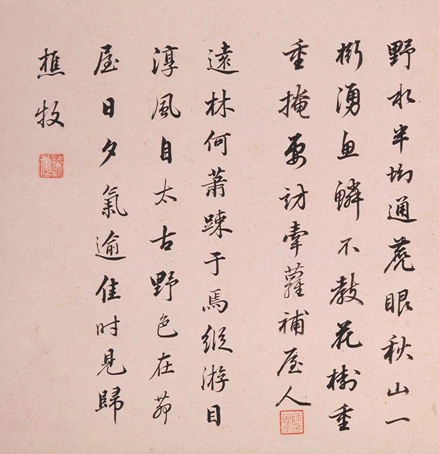 野水半坳通麂眼秋山一
桁湧魚鱗不教花樹重
重掩要訪牽蘿補屋人
遠林何蕭疎于焉縱游目
淳風自太古野色在茆
屋日夕氣逾佳时見歸
樵牧